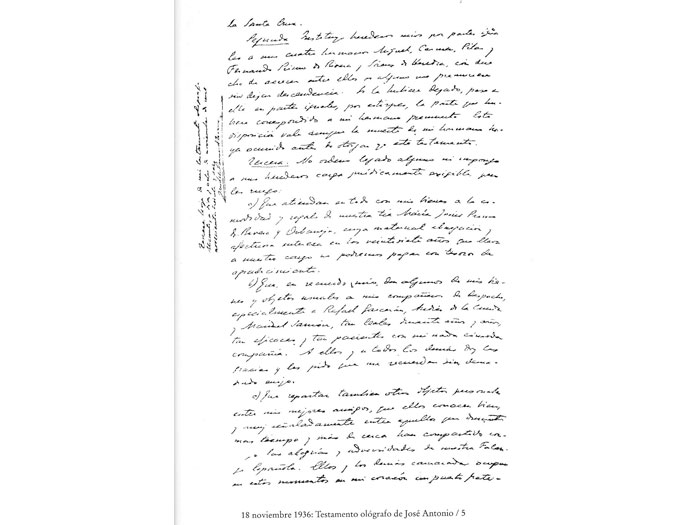 la Santa Cruz.
Segunda Instituyo herederos míos por partes igua-
les a mis cuatro hermanos Miguel, Carmen, Pilar y
Fernando Primo de Rivera y Sáenz de Heredia, con dere-
cho de acrecer entre ellos si alguno me premuriera
sin dejar descendencia. Si la hubiere dejado, pase a
ella en partes iguales, por estirpes, la parte que hu-
biera correspondido a mi hermano premuerto. Esta
disposición vale aunque la muerte de mi hermano ha-
ya ocurrido antes de otorgar yo este testamento.
Tercera. No ordeno legado alguno ni impongo
a mis herederos carga jurídicamente exigible pero
les ruego:
a) Que atiendan en todo con mis bienes a la co-
modidad y regalo de nuestra tía María Jesús Primo
de Rivera y Orbaneja, cuya maternal abnegación y
afectuosa entereza en los veintisiete años que lleva
a nuestro cargo no podremos pagar con tesoros de
agradecimiento.
b) Que, en recuerdo mío, den algunos de mis bie-
nes y objetos usuales a mis compañeros de despacho,
especialmente a Rafael Garcerán, Andrés de la Cuerda
y Manuel Sarrión, tan leales durante años y años,
tan eficaces y tan pacientes con mi nada cómoda
compañía. A ellos y a todos los demás doy las
gracias y les pido que me recuerden sin dema-
siado enojo.
c) Que repartan también otros objetos personales
entre mis mejores amigos, que ellos conocen bien,
y muy señaladamente entre aquellos que durante
más tiempo y más de cerca han compartido con-
migo las alegrías y adversidades de nuestra Falan-
ge Española. Ellos y los demás camaradas ocupan
en estos momentos en mi corazón un puesto frater-
18 noviembre 1936: Testamento ológrafo de José Antonio / 5